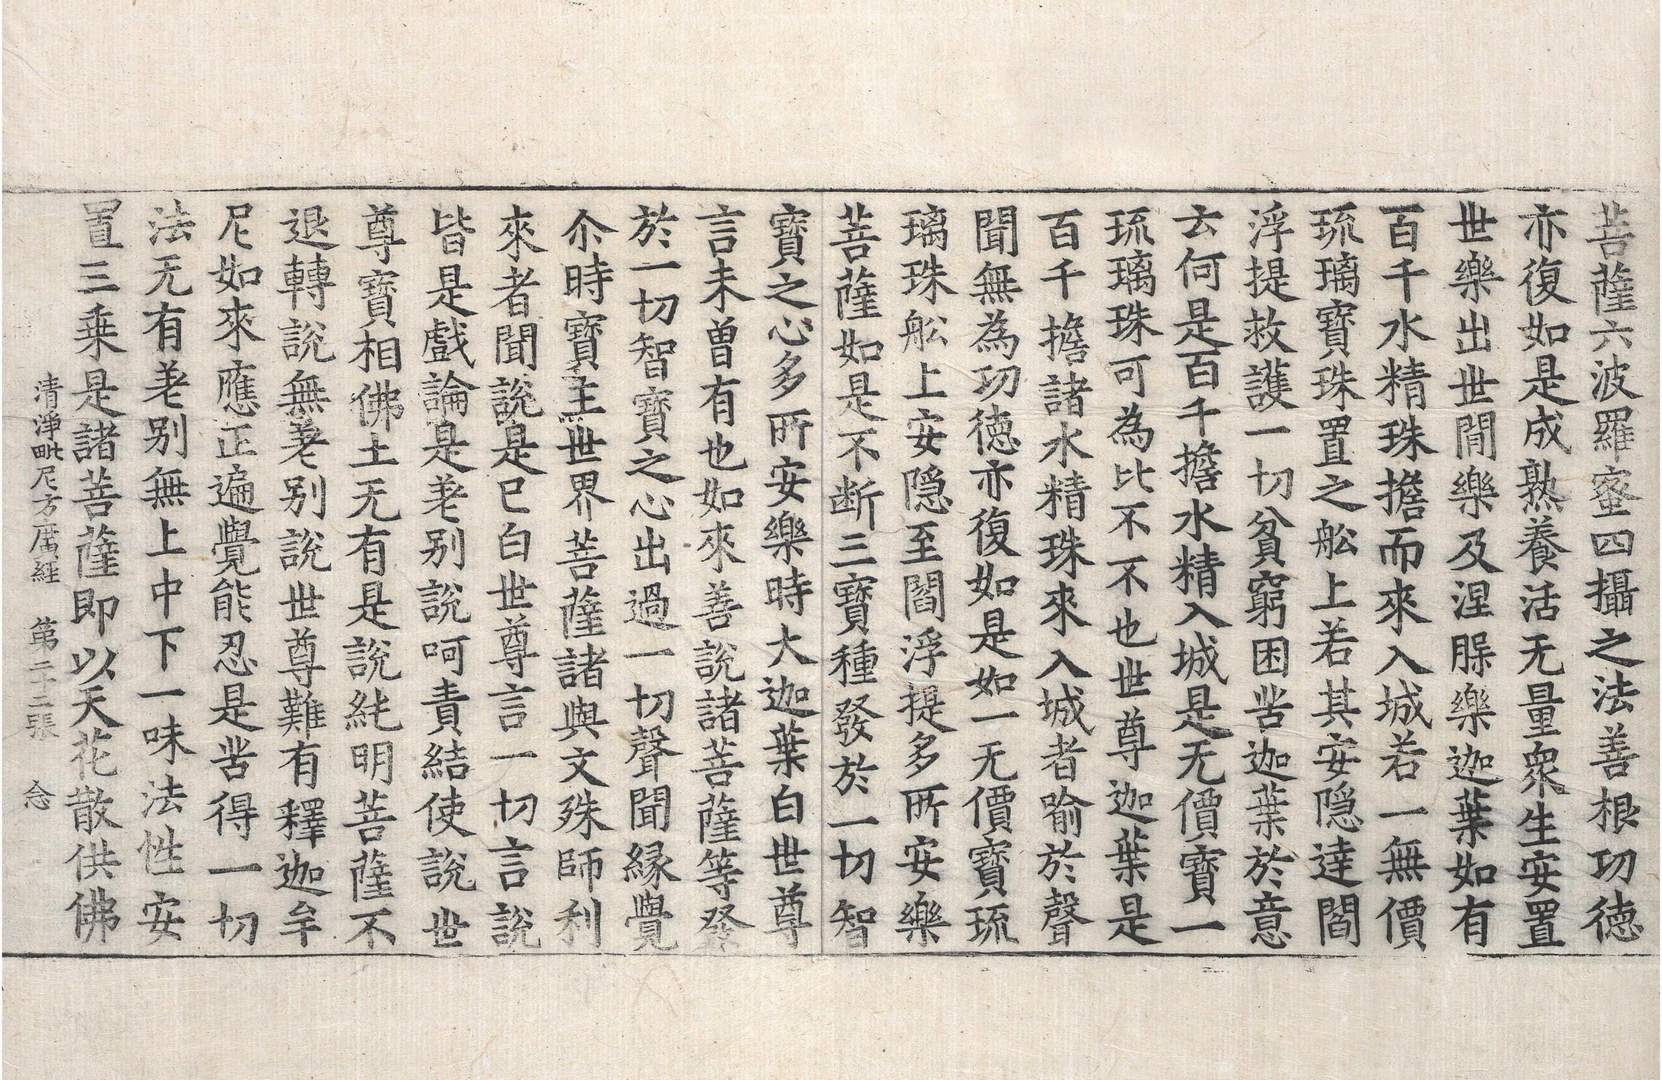 菩薩六波羅蜜四攝之法善根功德
亦復如是成熟養活无量衆生安置
世樂出世間樂及涅槃樂迦葉如有
百千水精珠擔而來入城若一無價
琉璃寶珠置之舩上若其安隱達閻
浮提救護一切貧窮困苦迦葉於意
云何是百千擔水精入城是无價寶一
琉璃珠可為比不不也世尊迦葉是
百千擔諸水精珠來入城者喻於聲
聞無為功德亦復如是如一无價寶琉
璃珠舩上安隱至閻浮提多所安樂
菩薩如是不断三寶種發於一切智
寶之心多所安樂時大迦葉白世尊
言未曽有也如來善說諸菩薩等發
於一切智寶之心出過一切聲聞縁覺
尒時寶主世界菩薩諸與文殊師利
來者聞說是已白世尊言一切言說
皆是戲論是差别說呵責結使說世
尊寶相佛土无有是說純明菩薩不
退轉說無差别說世尊難有釋迦牟
尼如來應正遍覺能忍是苦得一切
法无有差别無上中下一味法性安
置三乗是諸菩薩即以天花散供佛
清淨毗尼方廣經 第二十三張 念